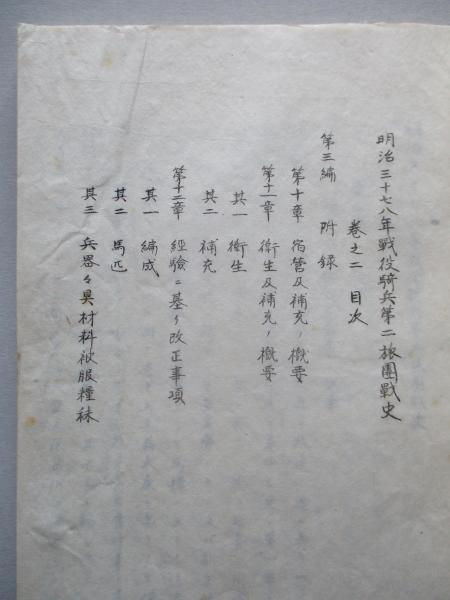 明治三十七八年戦役騎兵第二旅團戦史
巻之二 目次
第三編 附録
第十章 宿管及補充ノ概要
第十一章 衛生及補充ノ概要
其一 衛生
其二 補充
第十二章 経験ニ基ク改正事項
其一 編成
其二 馬匹
其三 兵器々具材料被服糧秣